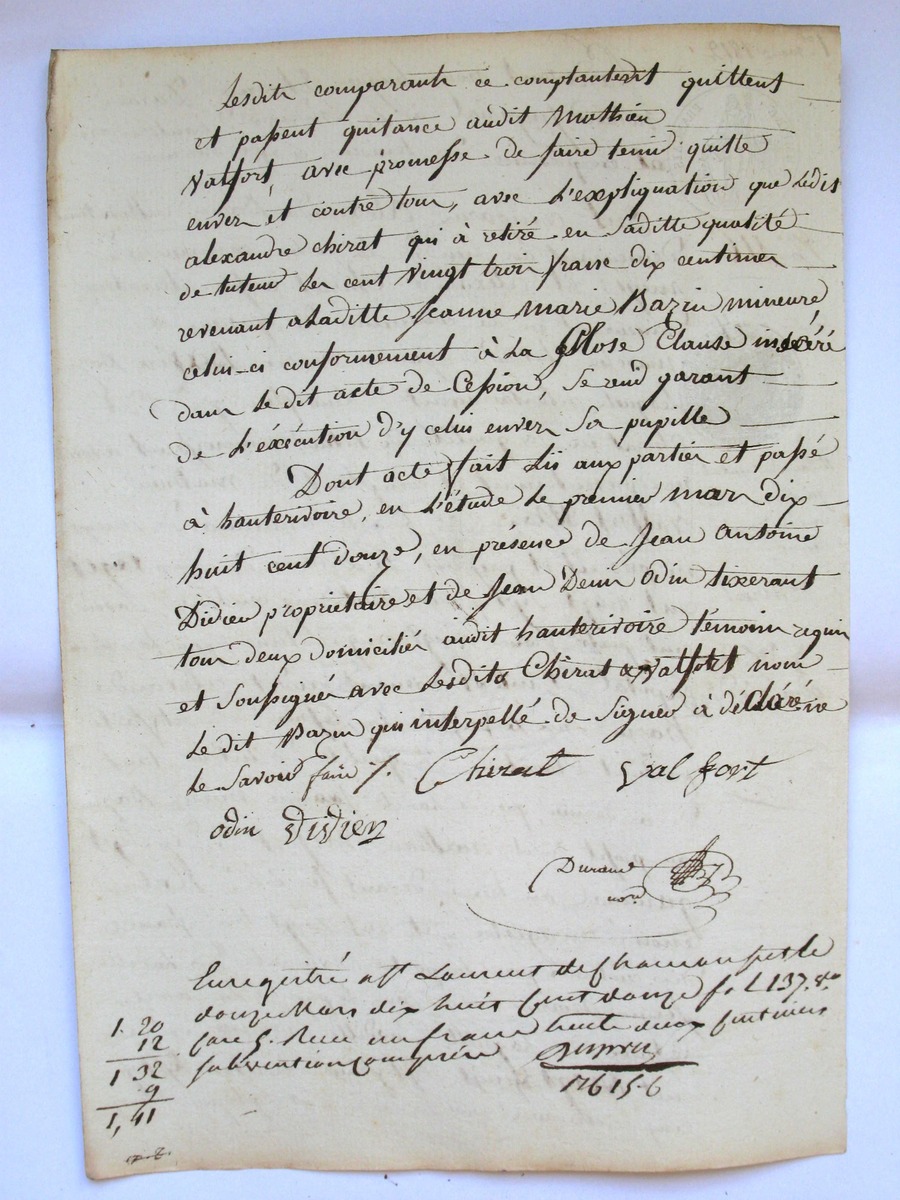 Lesdits comparants ce comptanterit quittent
et passent quitance audit Mathieu
Valfort, avec promesse de faire tenir quitte
envers et contre tous, avec L'expliquation que Ledit
alexandre chirat qui à retiré en Saditte qualité
de tuteur Les cent vingt trois francs dix centimes
revenant a Laditte Jeanne marie Bazin mineure,
celui-ci conformement à La Clause inséré
dans Ledit acte de Cession, Se rend garant
de L'éxécution d'y celui envers Sa pupille
Dont acte fait Lû aux parties et passé
à hauterivoire, en L'étude Le premier mars dix
huit cent douze, en présence de Jean Antoine
Didier proprietaire et de Jean Denis Odin tixerant
tous deux domiciliés audit hauterivoire témoins requis
et Soussignés avec Lesdits Chirat & Valfort non
Le dit Bazin qui interpellé de Signer à déclaré ne
Le Savoir faire /.
Chirat
Valfort
odin
didier
Durand
nore
Enregistré a St Laurent de Chamousset le
douze Mars dix huit Cent douze f. 137. Vo
Case 5. Recu un franc trente deux Centimes
subvention comprise
1. 20
12
1 32
9
1,41